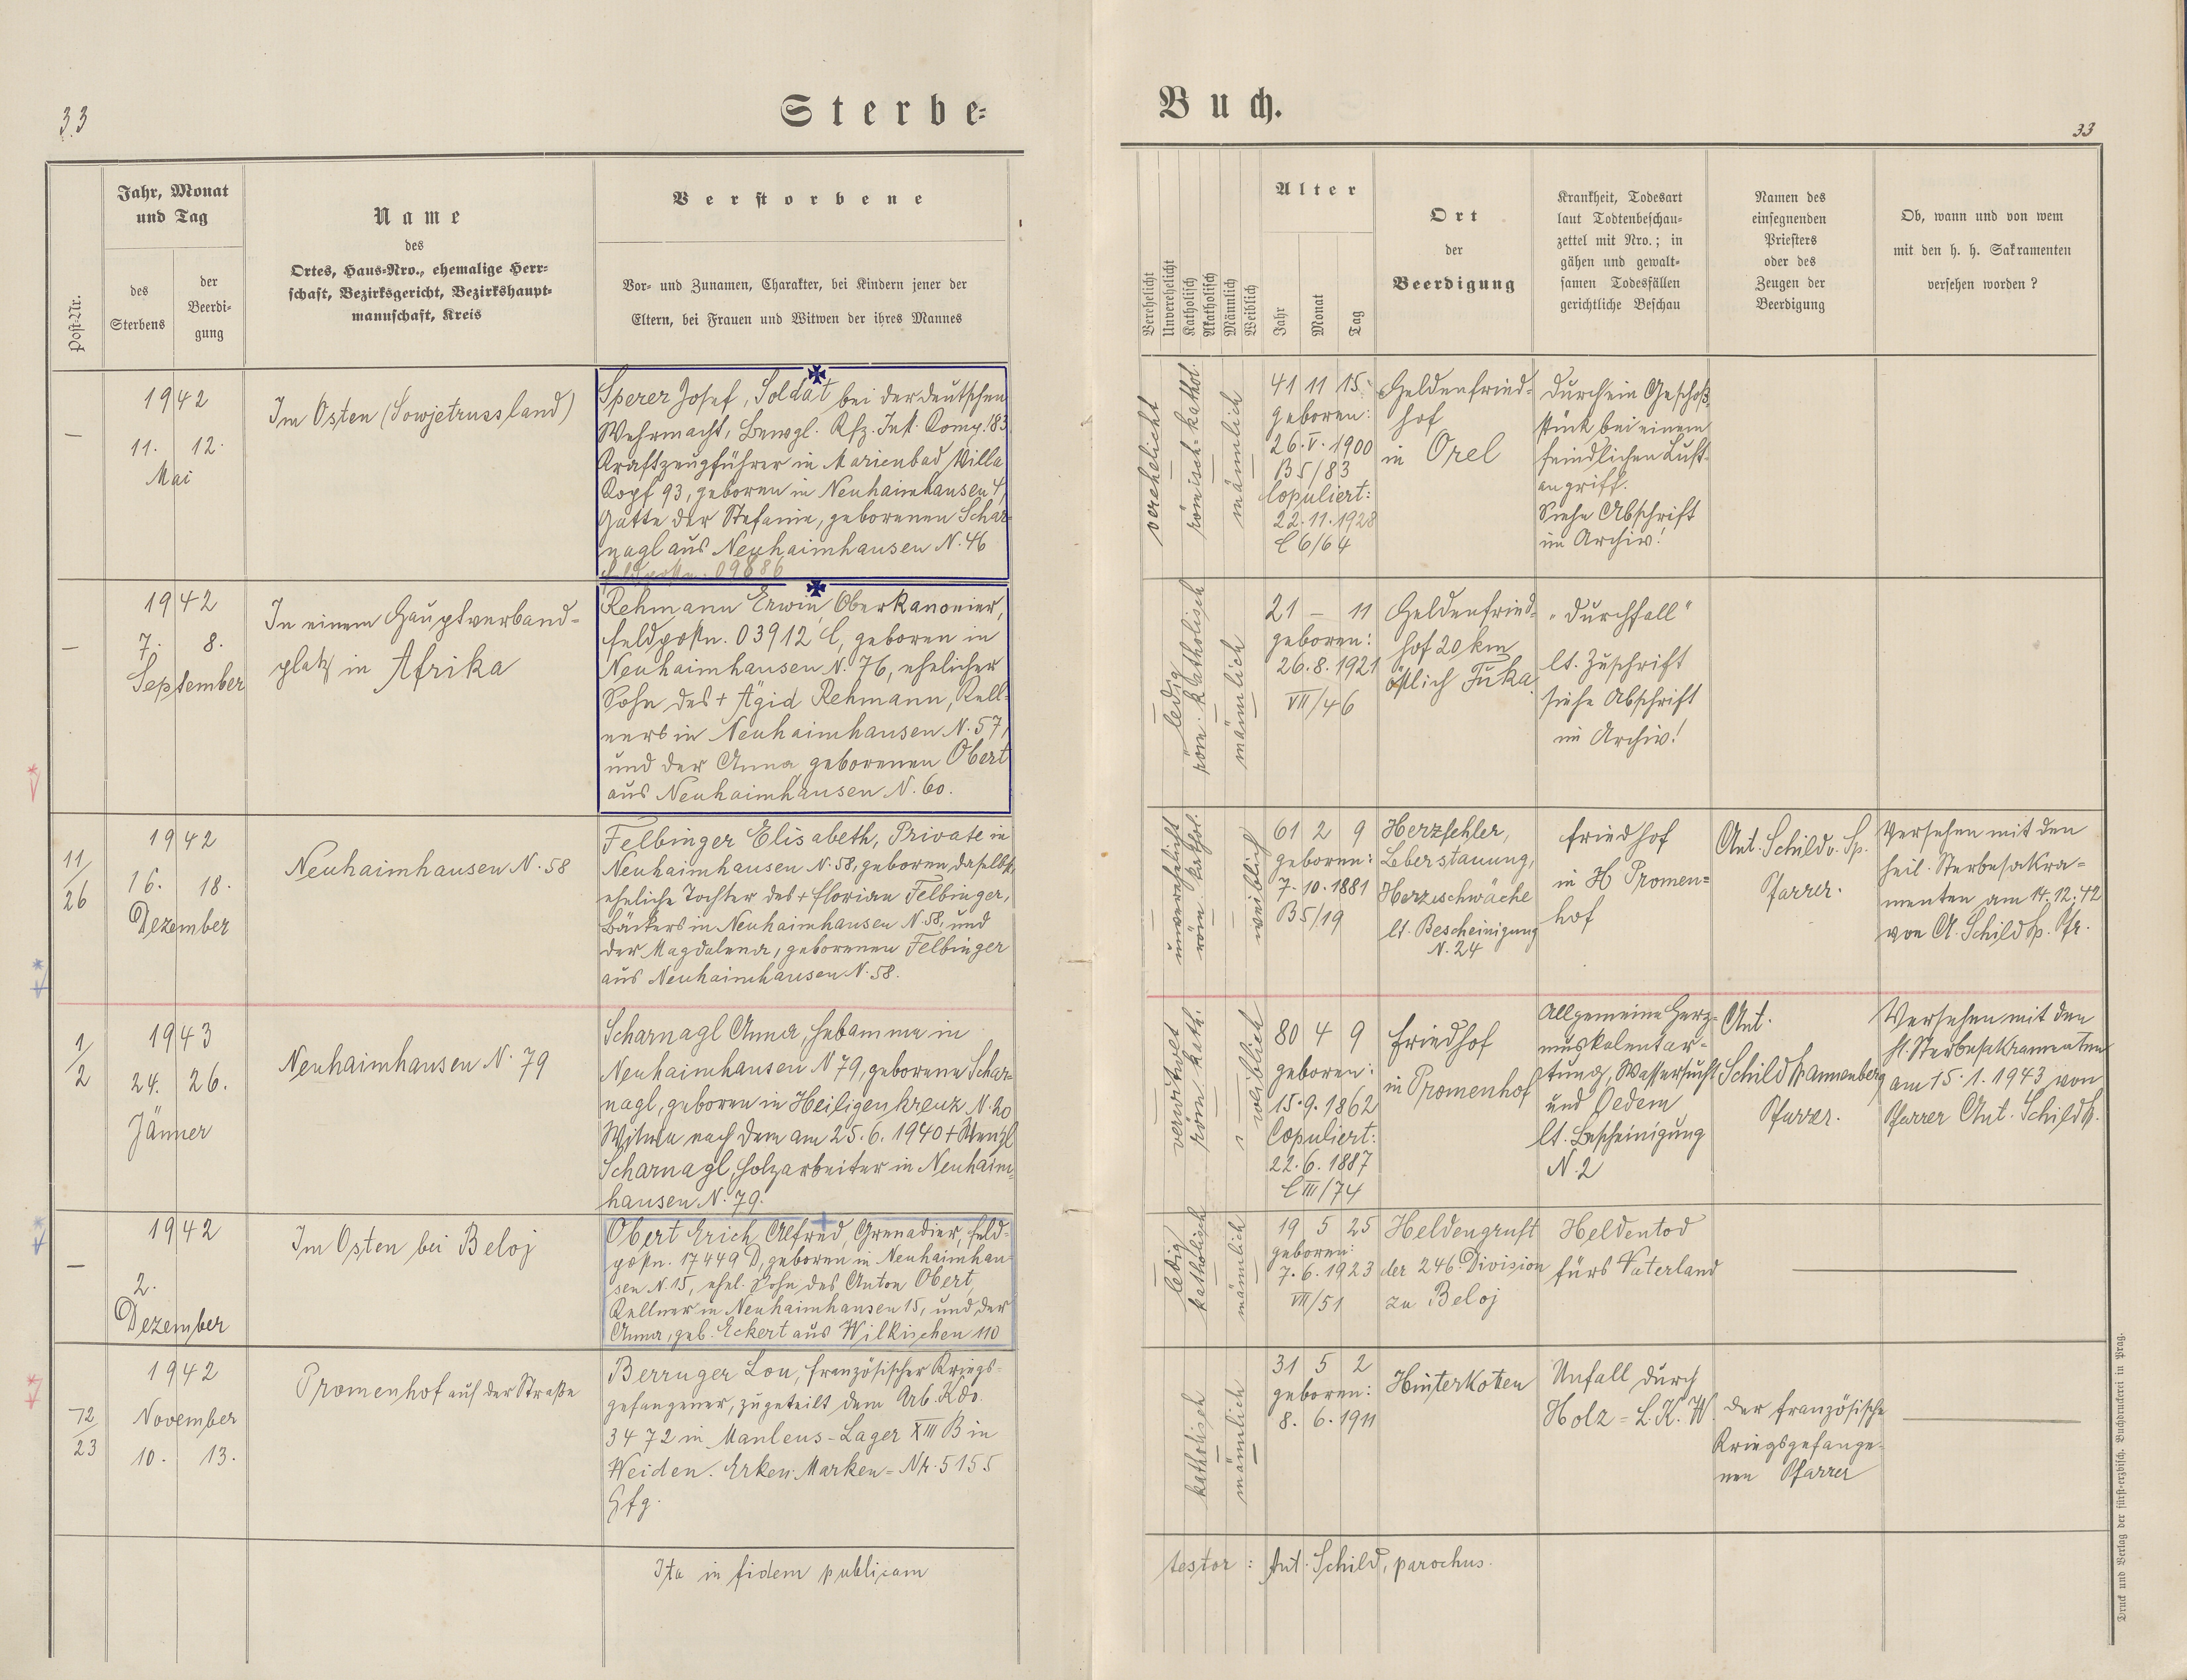 33
Sterbe=
Buch.
33
Post-Nr.
Jahr, Monat
und Tag
des
Sterbens
der
Beerdi=
gung
Name
des
Ortes, Haus=Nro., ehemalige Herr=
schaft, Bezirksgericht, Bezirkshaupt=
mannschaft, Kreis
Verstorbene
Vor= und Zunamen, Charakter, bei Kindern jener der
Eltern, bei Frauen und Witwen der ihres Mannes
Verehelicht
Unverehelicht
Katholisch
Akatholisch
Männlich
Weiblich
Alter
Jahr
Monat
Tag
Ort
der
Beerdigung
Krankheit, Todesart
laut Todtenbeschau=
zettel mit Nro.; in
gähen und gewalt=
samen Todesfällen
gerichtliche Beschau
Namen des
einsegnenden
Priesters
oder des
Zeugen der
Beerdigung
Ob, wann und von wem
mit den h. h. Sakramenten
versehen worden?
—
1942
11. 12.
Mai
Im Osten (Sowjetrussland)
Sperer Josef, Soldat bei der deutschen
Wehrmacht, Bewgl. Kfz. Inst. Komp. 183
Kraftzeugführer in Marienbad Villa
Kopf 93, geboren in Neuhaimhausen 4,
Gatte der Stefanie, geborenen Schar=
nagl aus Neuhaimhausen N. 46
Feldpostn. 09686
verehelicht
römisch=kathol.
männlich
41 11 15
geboren:
26.V.1900
B5/83
Copuliert:
22.11.1928
C6/64
Heldenfried=
hof
in Orel
Durch ein Geschoß=
stück bei einem
feindlichen Luft=
angriff.
Siehe Abschrift
im Archiv!
—
1942
7. 8.
September
In einem Hauptverband=
platz in Afrika
Rehmann Erwin, Oberkanonier,
Feldpostn. 03912 C, geboren in
Neuhaimhausen N. 76, ehelicher
Sohn des + Ägid Rehmann, Kell=
ners in Neuhaimhausen N. 57,
und der Anna geborenen Obert
aus Neuhaimhausen N. 60.
ledig
röm. katholisch
männlich
21 — 11
geboren:
26.8.1921
VII/46
Heldenfried=
hof 20 km
östlich Fuka.
"Durchfall"
lt. Zuschrift
siehe Abschrift
im Archiv!
11/26
1942
16. 18.
Dezember
Neuhaimhausen N. 58
Felbinger Elisabeth, Private in
Neuhaimhausen N. 58, geboren daselbst,
eheliche Tochter des + Florian Felbinger,
Bäckers in Neuhaimhausen N. 58, und
der Magdalena, geborenen Felbinger
aus Neuhaimhausen N. 58.
unverehelicht
röm. kathol.
weiblich
61 2 9
geboren:
7.10.1881
B5/19
Herzfehler,
Leberstauung,
Herzschwäche
lt. Bescheinigung
N. 24
Friedhof
in H Promen=
hof
Ant. Schild v. Sp.
Pfarrer.
Versehen mit den
heil. Sterbesakra=
menten am 14.12.42
von A. Schild Sp. Pfr.
1/2
1943
24. 26.
Jänner
Neuhaimhausen N. 79
Scharnagl Anna, Hebamme in
Neuhaimhausen N 79, geborene Schar=
nagl, geboren in Heiligenkreuz N. 20
Witwe nach dem am 25.6.1940 + Wenzl
Scharnagl, Holzarbeiter in Neuhaim=
hausen N. 79.
verwitwet
röm. kath.
weiblich
80 4 9
geboren:
15.9.1862
Copuliert:
22.6.1887
C III/74
Friedhof
in Promenhof
Allgemeine Herz=
muskelentar=
tung, Wassersucht
und Oedem
lt. Bescheinigung
N. 2
Ant.
Schild
Pfarrer.
Versehen mit den
hl. Sterbesakramenten
am 15.1.1943 von
Pfarrer Ant. Schild
—
1942
2.
Dezember
Im Osten bei Beloj
Obert Erich, Alfred, Grenadier, Feld=
postn. 17449 D, geboren in Neuhaimhau=
sen N. 15, ehel. Sohn des Anton Obert,
Kellner in Neuhaimhausen 15, und der
Anna, geb. Eckert aus Wilkischen 110
ledig
katholisch
männlich
19 5 25
geboren:
7.6.1923
VII/51
Heldengruft
der 246. Division
zu Beloj
Heldentod
fürs Vaterland
12/23
1942
November
10. 13.
Promenhof auf der Straße
Berruger Lou, französischer Kriegs=
gefangener, zugeteilt dem Arb. Kdo.
3472 in Manleus-Lager XIII B in
Weiden. Erken. Marken=Nr. 5155
Gfg.
katholisch
männlich
31 5 2
geboren:
8.6.1911
Hinterkotten
Unfall durch
Holz=L.K.W.
der französische
Kriegsgefange=
nen Pfarrer
Ita in fidem publicam
testor: Ant. Schild, parochus.
Druck und Verlag der fürst=erzbisch. Buchdruckerei in Prag.